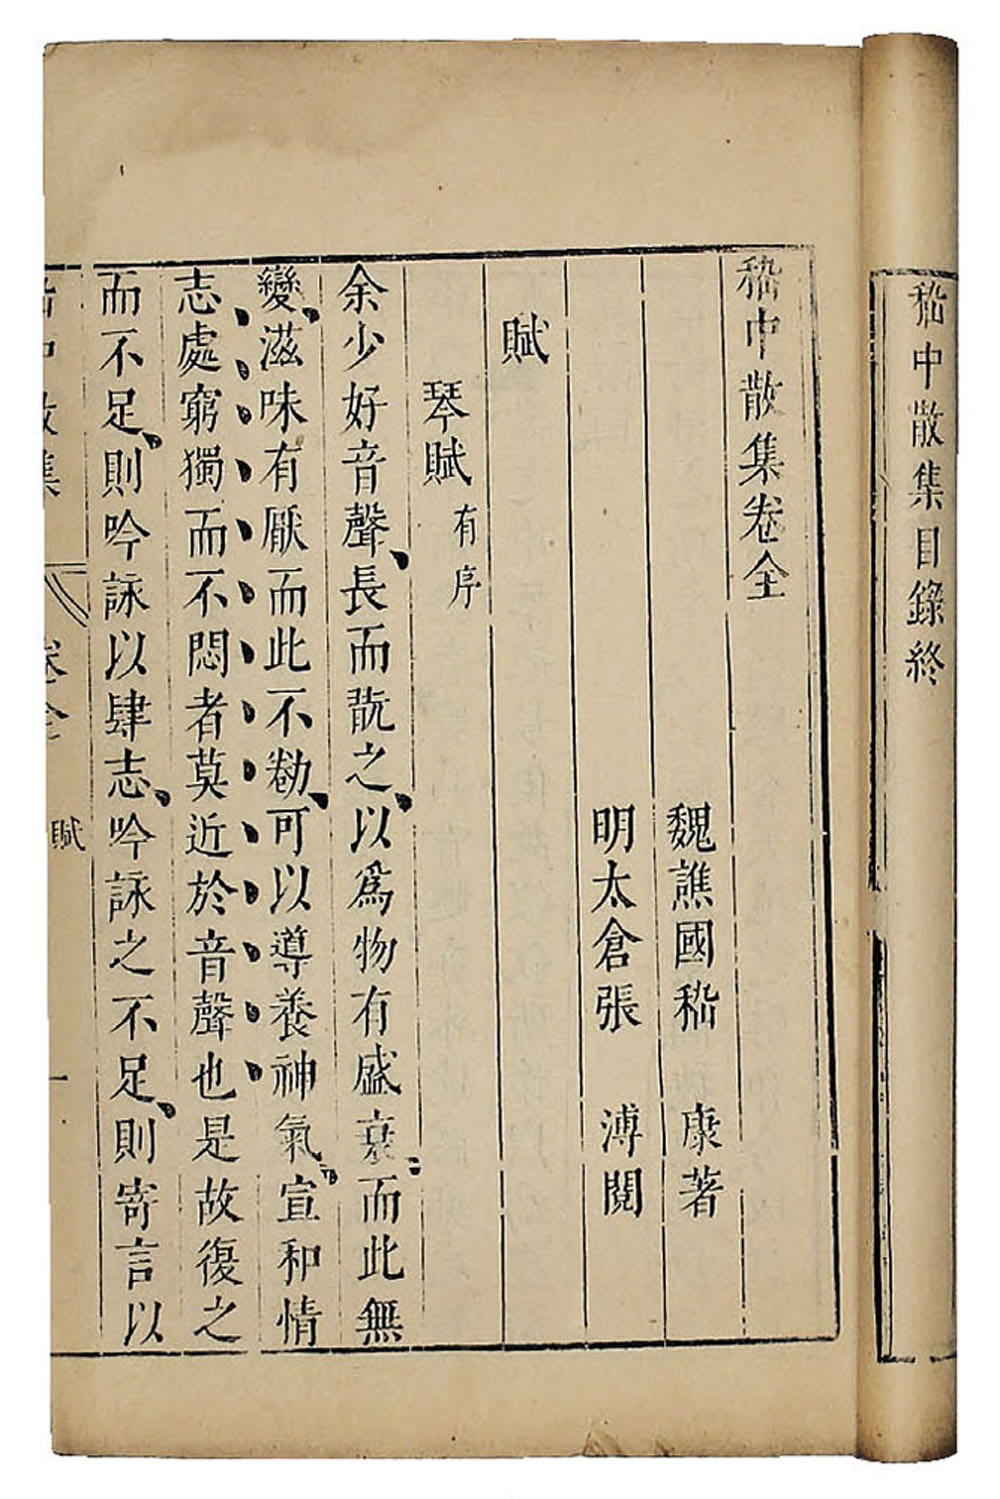 嵇中散集目錄終
嵇中散集卷全
魏譙國嵇 康著
明太倉張 溥閱
賦
琴賦有序
余少好音聲長而翫之以爲物有盛衰而此無
變滋味有厭而此不勌可以導養神氣宣和情
志處窮獨而不悶者莫近於音聲也是故復之
而不足則吟詠以肆志吟詠之不足則寄言以
嵇中散集 卷全 賦 一